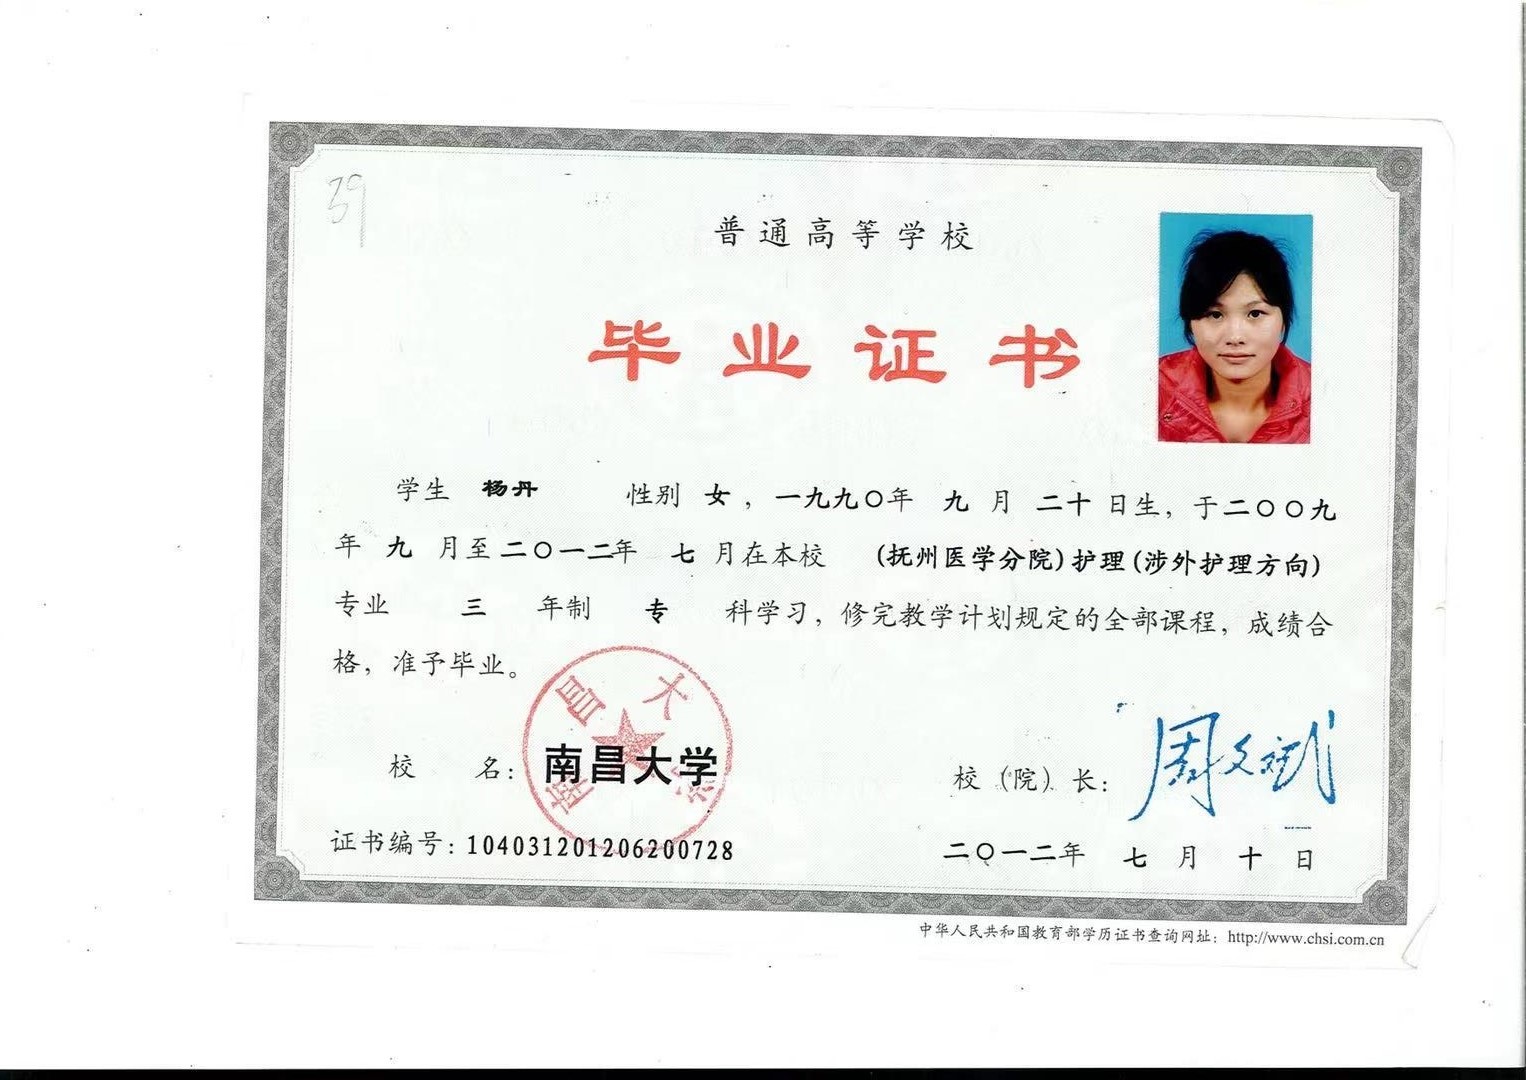 39
普通高等学校
毕业证书
学生 杨丹 性别 女，一九九〇年 九 月 二十 日生，于二〇〇九
年 九 月至二〇一二年 七 月在本校 (抚州医学分院)护理(涉外护理方向)
专业 三 年制 专 科学习，修完教学计划规定的全部课程，成绩合
格，准予毕业。
南昌大学
校 名：南昌大学
校（院）长：周文斌
证书编号：104031201206200728
二〇一二年 七 月 十 日
中华人民共和国教育部学历证书查询网址：http://www.chsi.com.cn